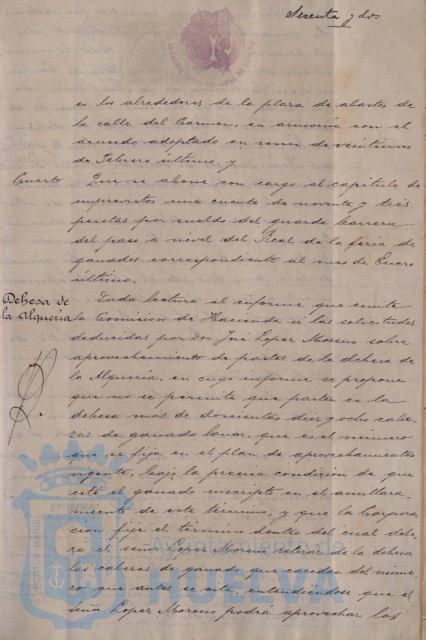 Sesenta y dos
en los alrededores de la plaza de abastos de
la calle del Carmen, en armonía con el
acuerdo adoptado en sesión de veintiuno
de Febrero último, y
Cuarto Que se abone con cargo al capítulo de
imprevistos una cuenta de noventa y tres
pesetas por sueldo del guarda barrera
del paso á nivel del Real de la feria de
ganados correspondiente al mes de Enero
último.
Dehesa de
la Alquería
Dada lectura al informe que emite
la Comisión de Hacienda á las solicitudes
deducidas por Don José Lopez Moreno sobre
aprovechamiento de pastos de la dehesa de
la Alquería, en cuyo informe se propone
que no se permita que paste en la
dehesa más de doscientas diez y ocho cabe-
zas de ganado lanar, que es el número
que se fija en el plan de aprovechamientos
vigente, bajo la precisa condición de que
esté el ganado inscripto en el amillara-
miento de este término, y que la Corpora-
ción fije el término dentro del cual debe-
rá el señor Lopez Moreno retirar de la dehesa
las cabezas de ganado que excedan del núme-
ro que antes se cita, entendiéndose que el
señor Lopez Moreno podrá aprovechar los
Ayuntamiento de
HUELVA